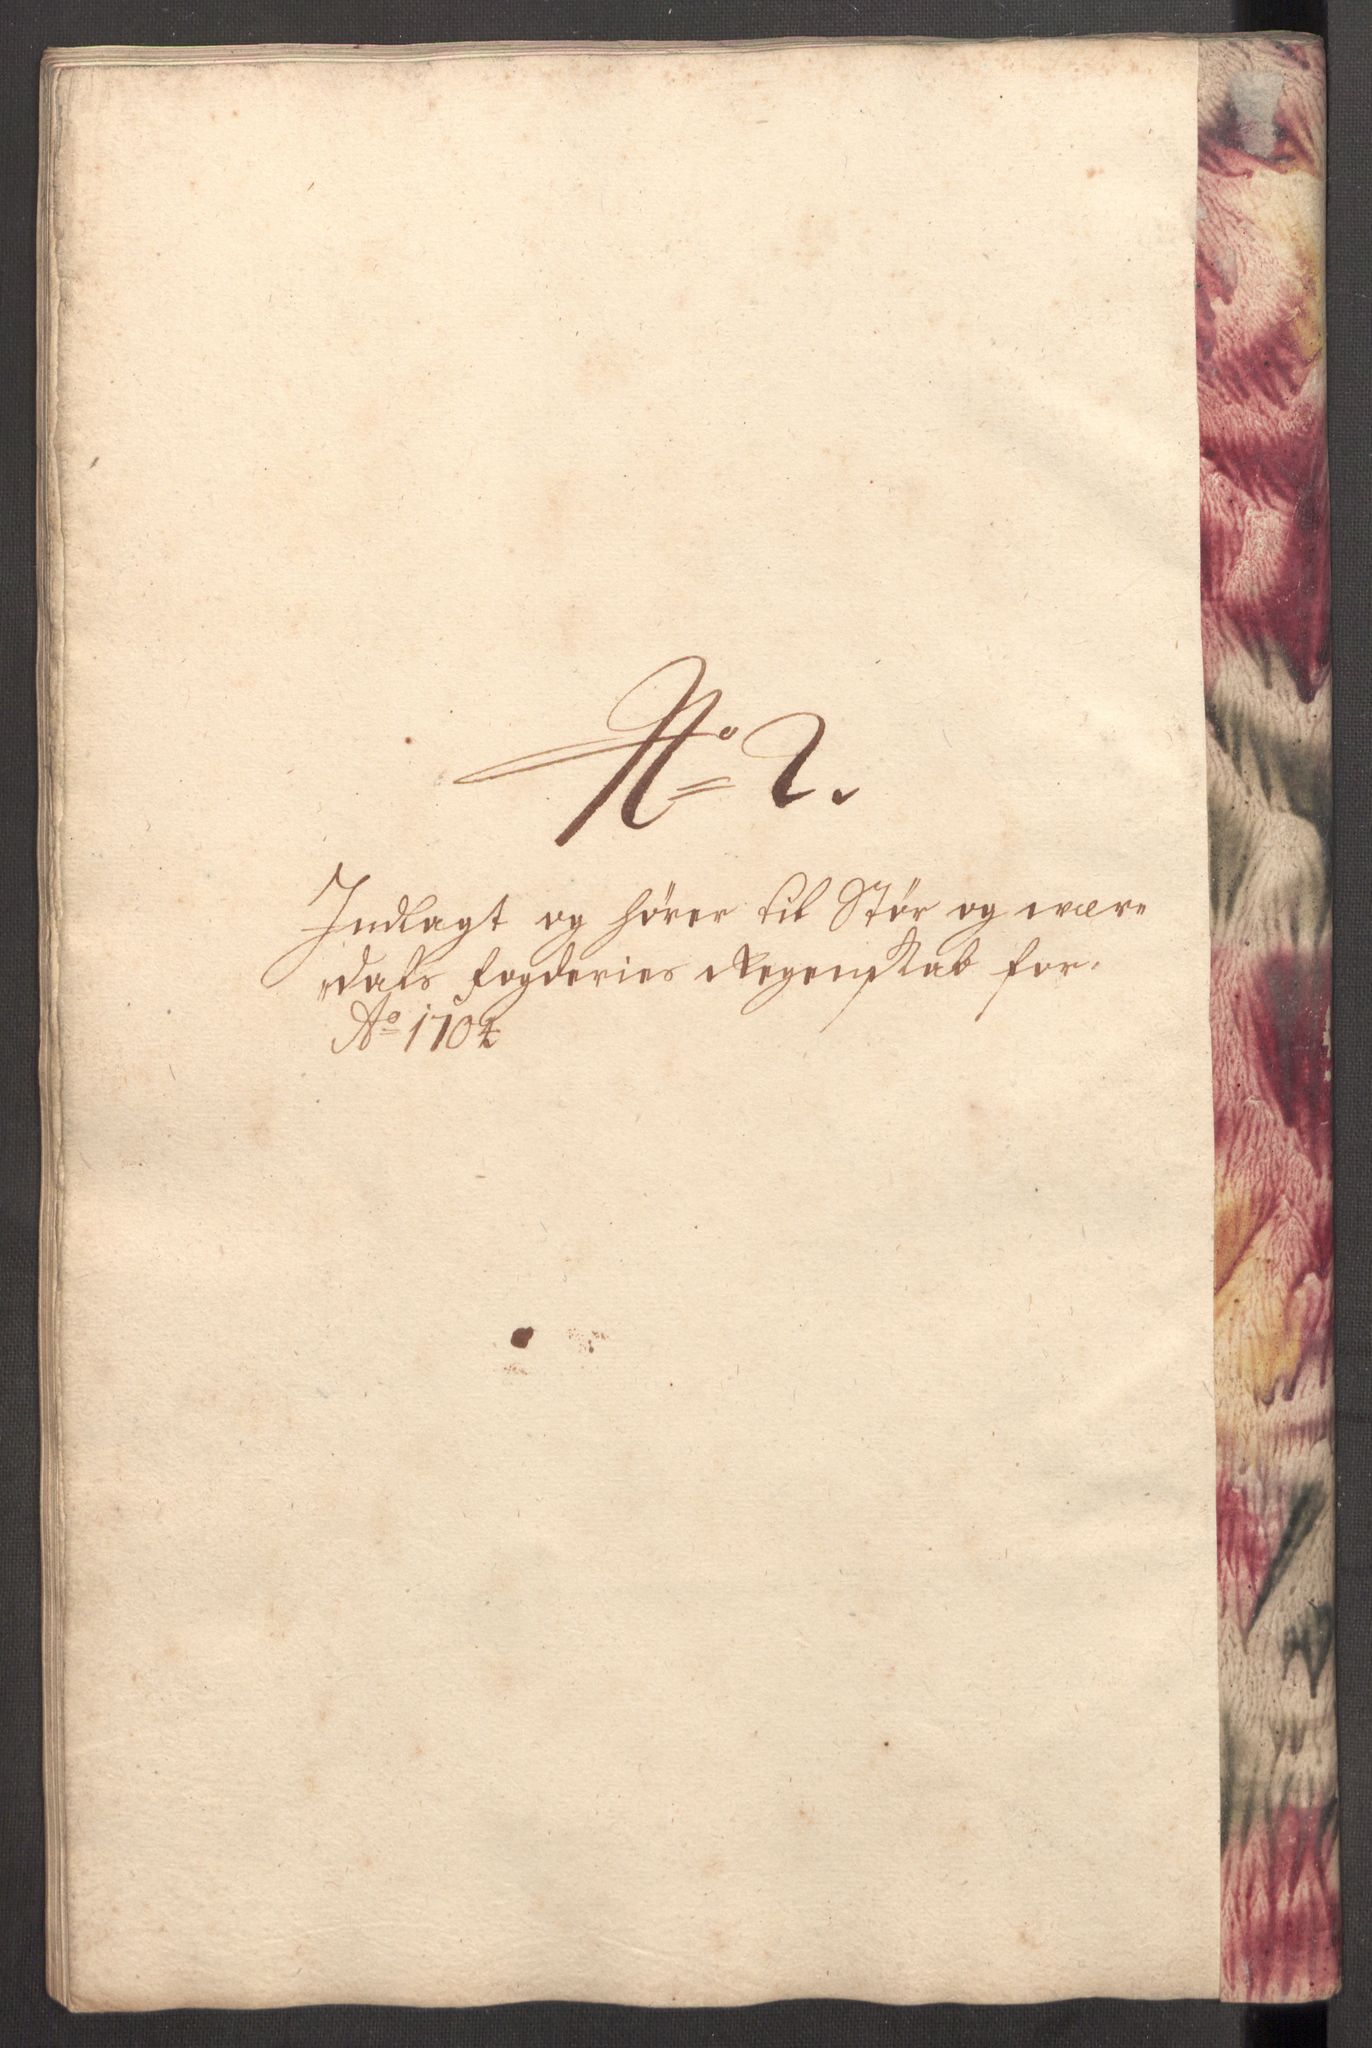 No 2.
Indlagt og hører til Stør og wær=
=dals fogderies Regenskab for
Ao 1704